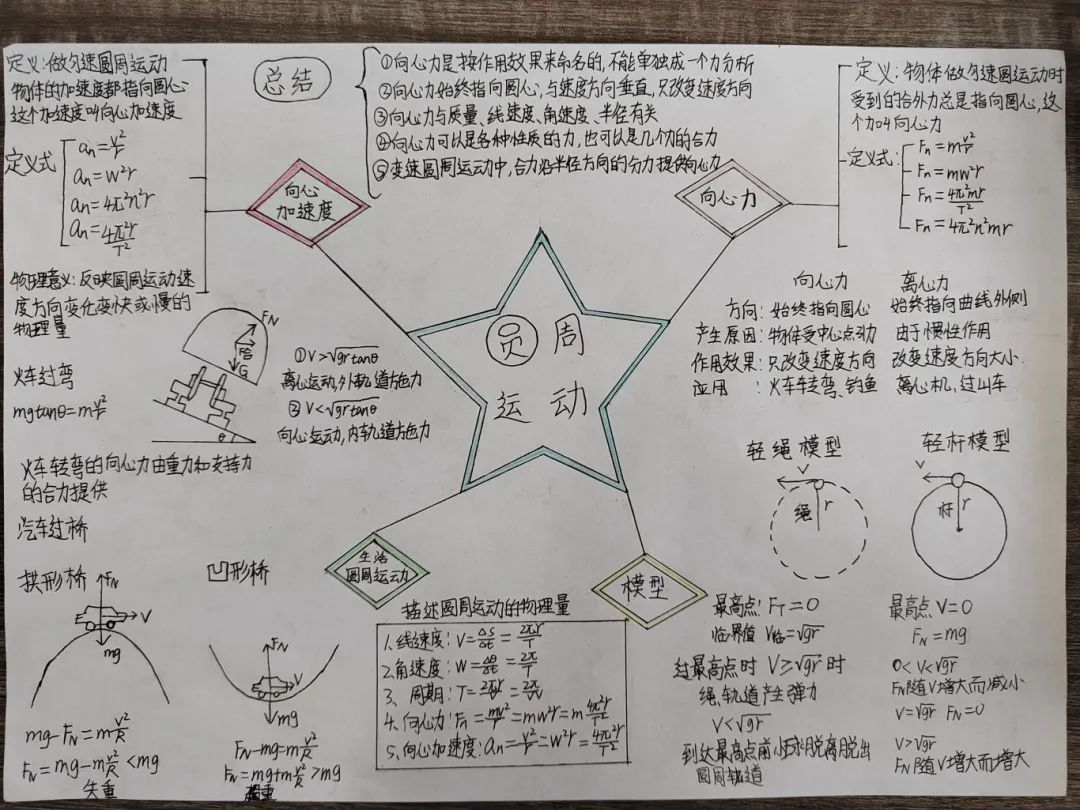 定义：做匀速圆周运动
物体的加速度都指向圆心
这个加速度叫向心加速度
定义式
aₙ=v²/r
aₙ=w²r
aₙ=4π²n²r
aₙ=4π²r/T²
物理意义：反映圆周运动速
度方向变化变快或慢的
物理量
总结
①向心力是按作用效果来命名的,不能单独成一个力分析
②向心力始终指向圆心,与速度方向垂直,只改变速度方向
③向心力与质量、线速度、角速度、半径有关
④向心力可以是各种性质的力,也可以是几个力的合力
⑤变速圆周运动中,合力沿半径方向的分力提供向心力
定义：物体做匀速圆运动时
受到的合外力总是指向圆心,这
个力叫向心力
定义式：
Fₙ=mv²/r
Fₙ=mw²r
Fₙ=4π²mr/T²
Fₙ=4π²n²mr
向心
加速度
向心力
圆周
运动
向心力 离心力
方向：始终指向圆心 始终指向曲线外侧
产生原因：物体受中心点动 由于惯性作用
作用效果：只改变速度方向 改变速度方向大小
应用：火车转弯、钓鱼 离心机,过山车
火车过弯
mgtanθ=mv²/r
FN
G
θ
①V>√grtanθ
离心运动,外轨道方色力
②V<√grtanθ
向心运动,内车轨道方色力
火车转弯的向心力由重力和支持力
的合力提供
汽车过桥
拱形桥
FN
V
mg
mg-FN=mv²/R
FN=mg-mv²/R<mg
失重
凹形桥
FN
V
mg
FN-mg=mv²/R
FN=mg+mv²/R>mg
生活
圆周运动
模型
描述圆周运动的物理量
1.线速度：V=Δs/Δt=2πr/T
2.角速度：W=Δθ/Δt=2π/T
3、周期：T=2πr/v=2π/w
4.向心力：Fₙ=mv²/r=mw²r=m4π²r/T²
5.向心加速度：aₙ=v²/r=w²r=4π²r/T²
轻绳模型
V
绳 r
最高点：FT=0
临界值 V临=√gr
过最高点时 V≥√gr时
绳、轨道产生弹力
V<√gr
到达最高点前小球脱离脱出
圆周轨道
轻杆模型
V
杆 r
最高点 V=0
FN=mg
0<V<√gr
FN随V增大而减小
V=√gr FN=0
V>√gr
FN随V增大而增大